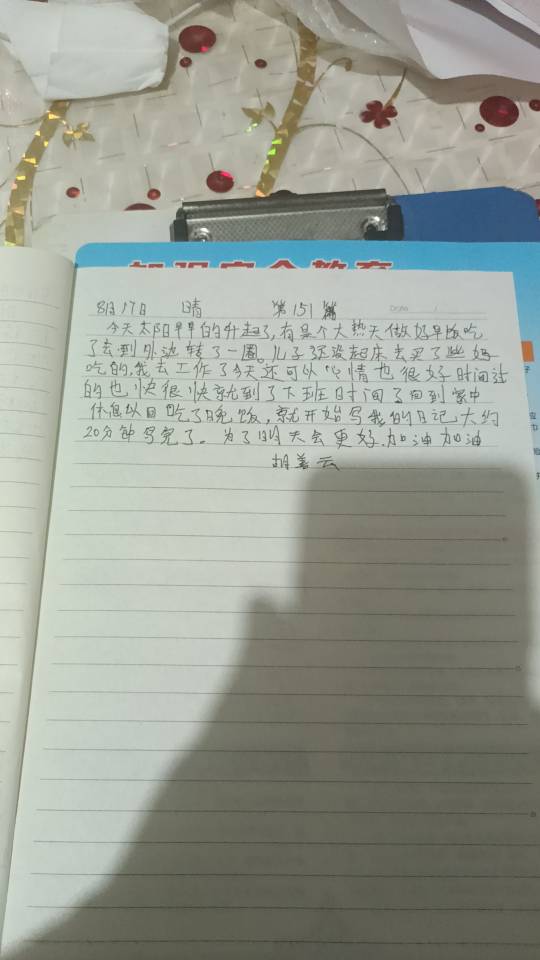 加强安全教育
8月17日 晴 第151篇 Date /
今天太阳早早的升起了,有是个大热天做好早饭吃
了去到外边转了一圈。儿子还没起床去买了些好
吃的,我去工作了今天还可以心情也很好时间过
的也快很快就到了下班时间了回到家中
休息以回吃了晚饭,就开始写我的日记大约
20分钟写完了。为了明天会更好.加油加油
胡善云